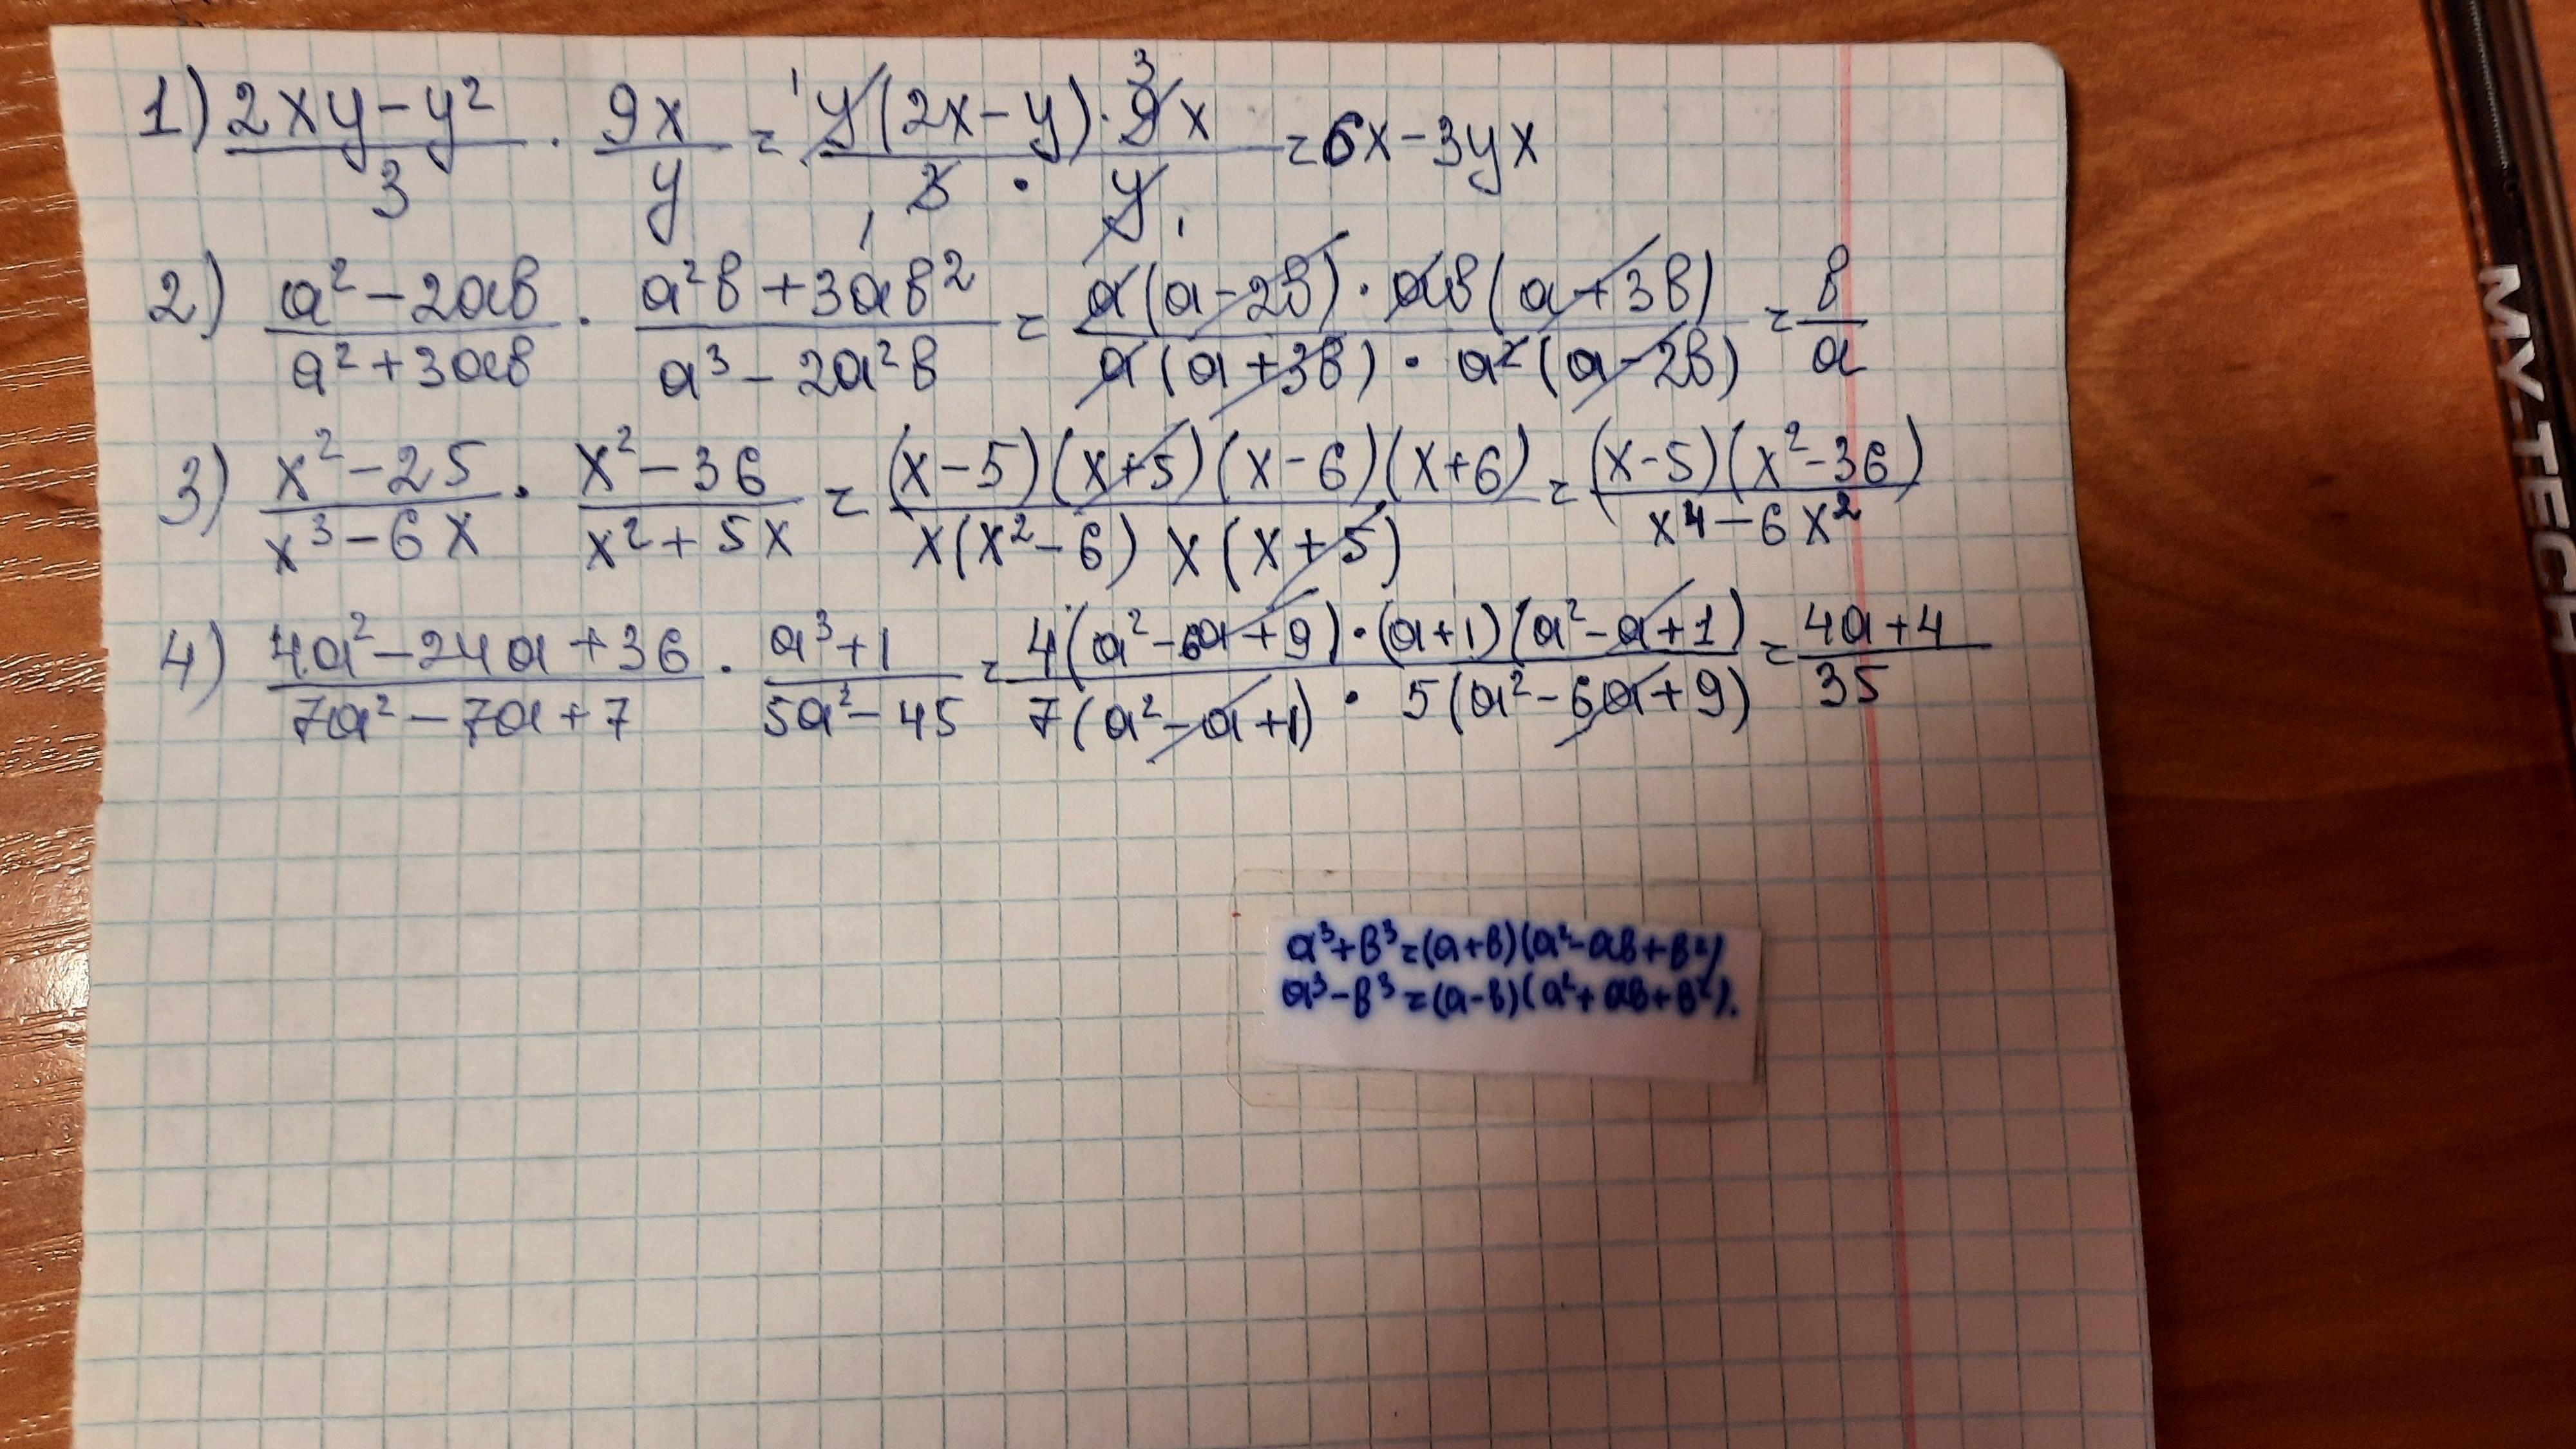 1) (2xy-y²)/3 · 9x/y = (y(2x-y)·9x)/(3·y) = 6x-3yx
2) (a²-2ab)/(a²+3ab) · (a²b+3ab²)/(a³-2a²b) = (a(a-2b)·ab(a+3b))/(a(a+3b)·a²(a-2b)) = b/a
3) (x²-25)/(x³-6x) · (x²-36)/(x²+5x) = ((x-5)(x+5)(x-6)(x+6))/(x(x²-6)x(x+5)) = ((x-5)(x²-36))/(x⁴-6x²)
4) (4a²-24a+36)/(7a²-7a+7) · (a³+1)/(5a²-45) = (4(a²-6a+9)·(a+1)(a²-a+1))/(7(a²-a+1)·5(a²-6a+9)) = (4a+4)/35
a³+b³=(a+b)(a²-ab+b²)
a³-b³=(a-b)(a²+ab+b²).
MY-TECH